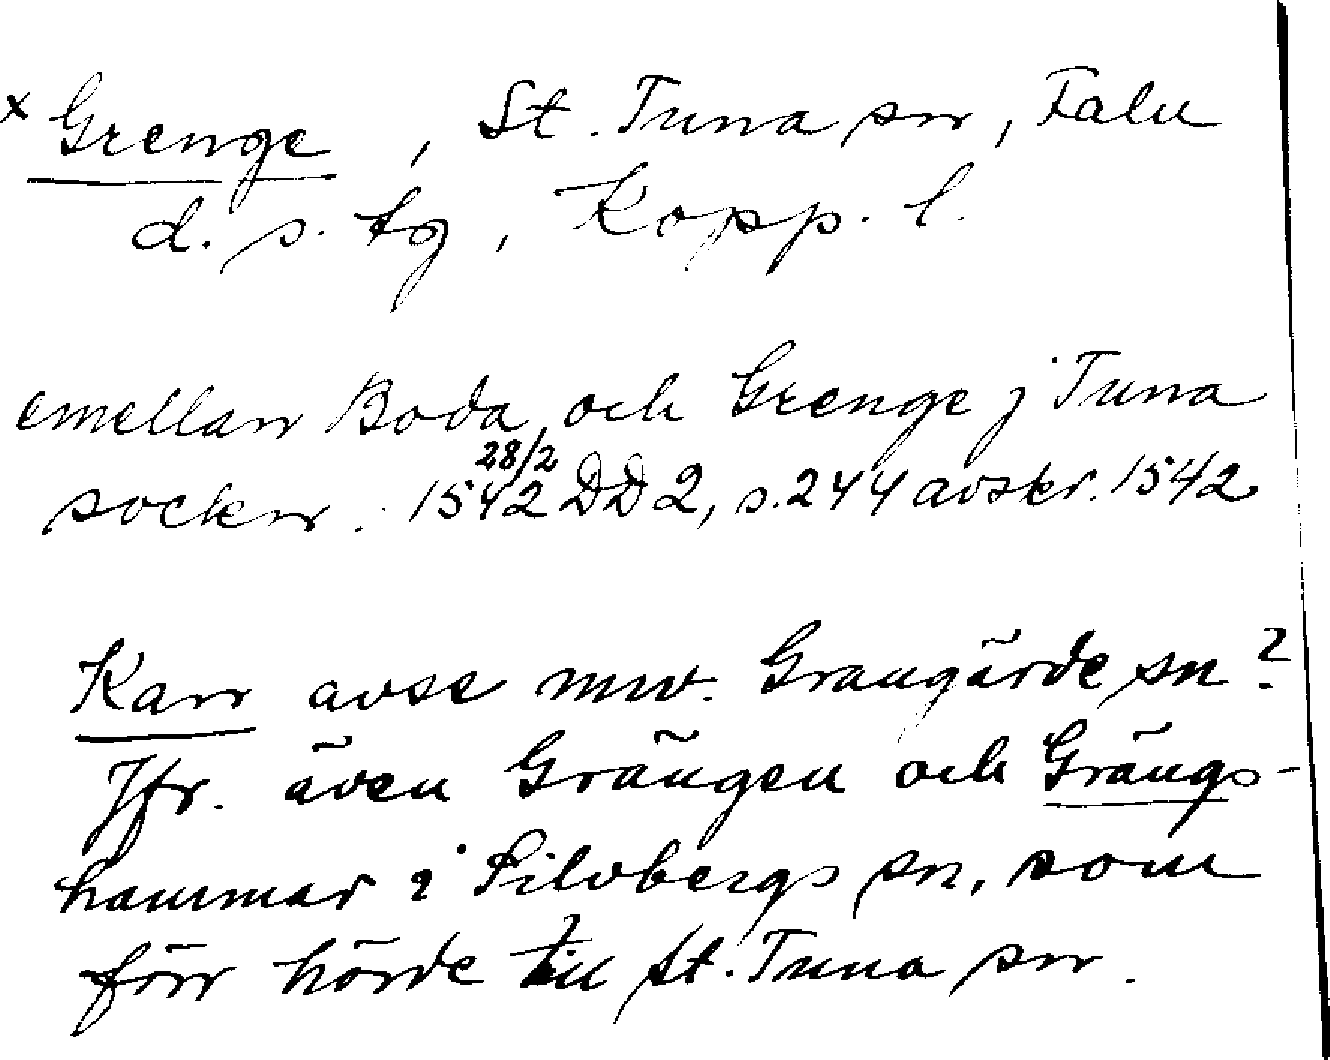 x Grenge, St. Tuna sn, Falu
d. s. tg, Kopp. l.
emellan Boda och Grenge j Tuna
sockn. 1542 28/2 DD 2, s. 244 avskr. 1542
Kan avse nuv. Grangärde sn?
Jfr. även Grängen och Grängs-
hammar i Silvbergs sn, som
förr hörde till St. Tuna sn.